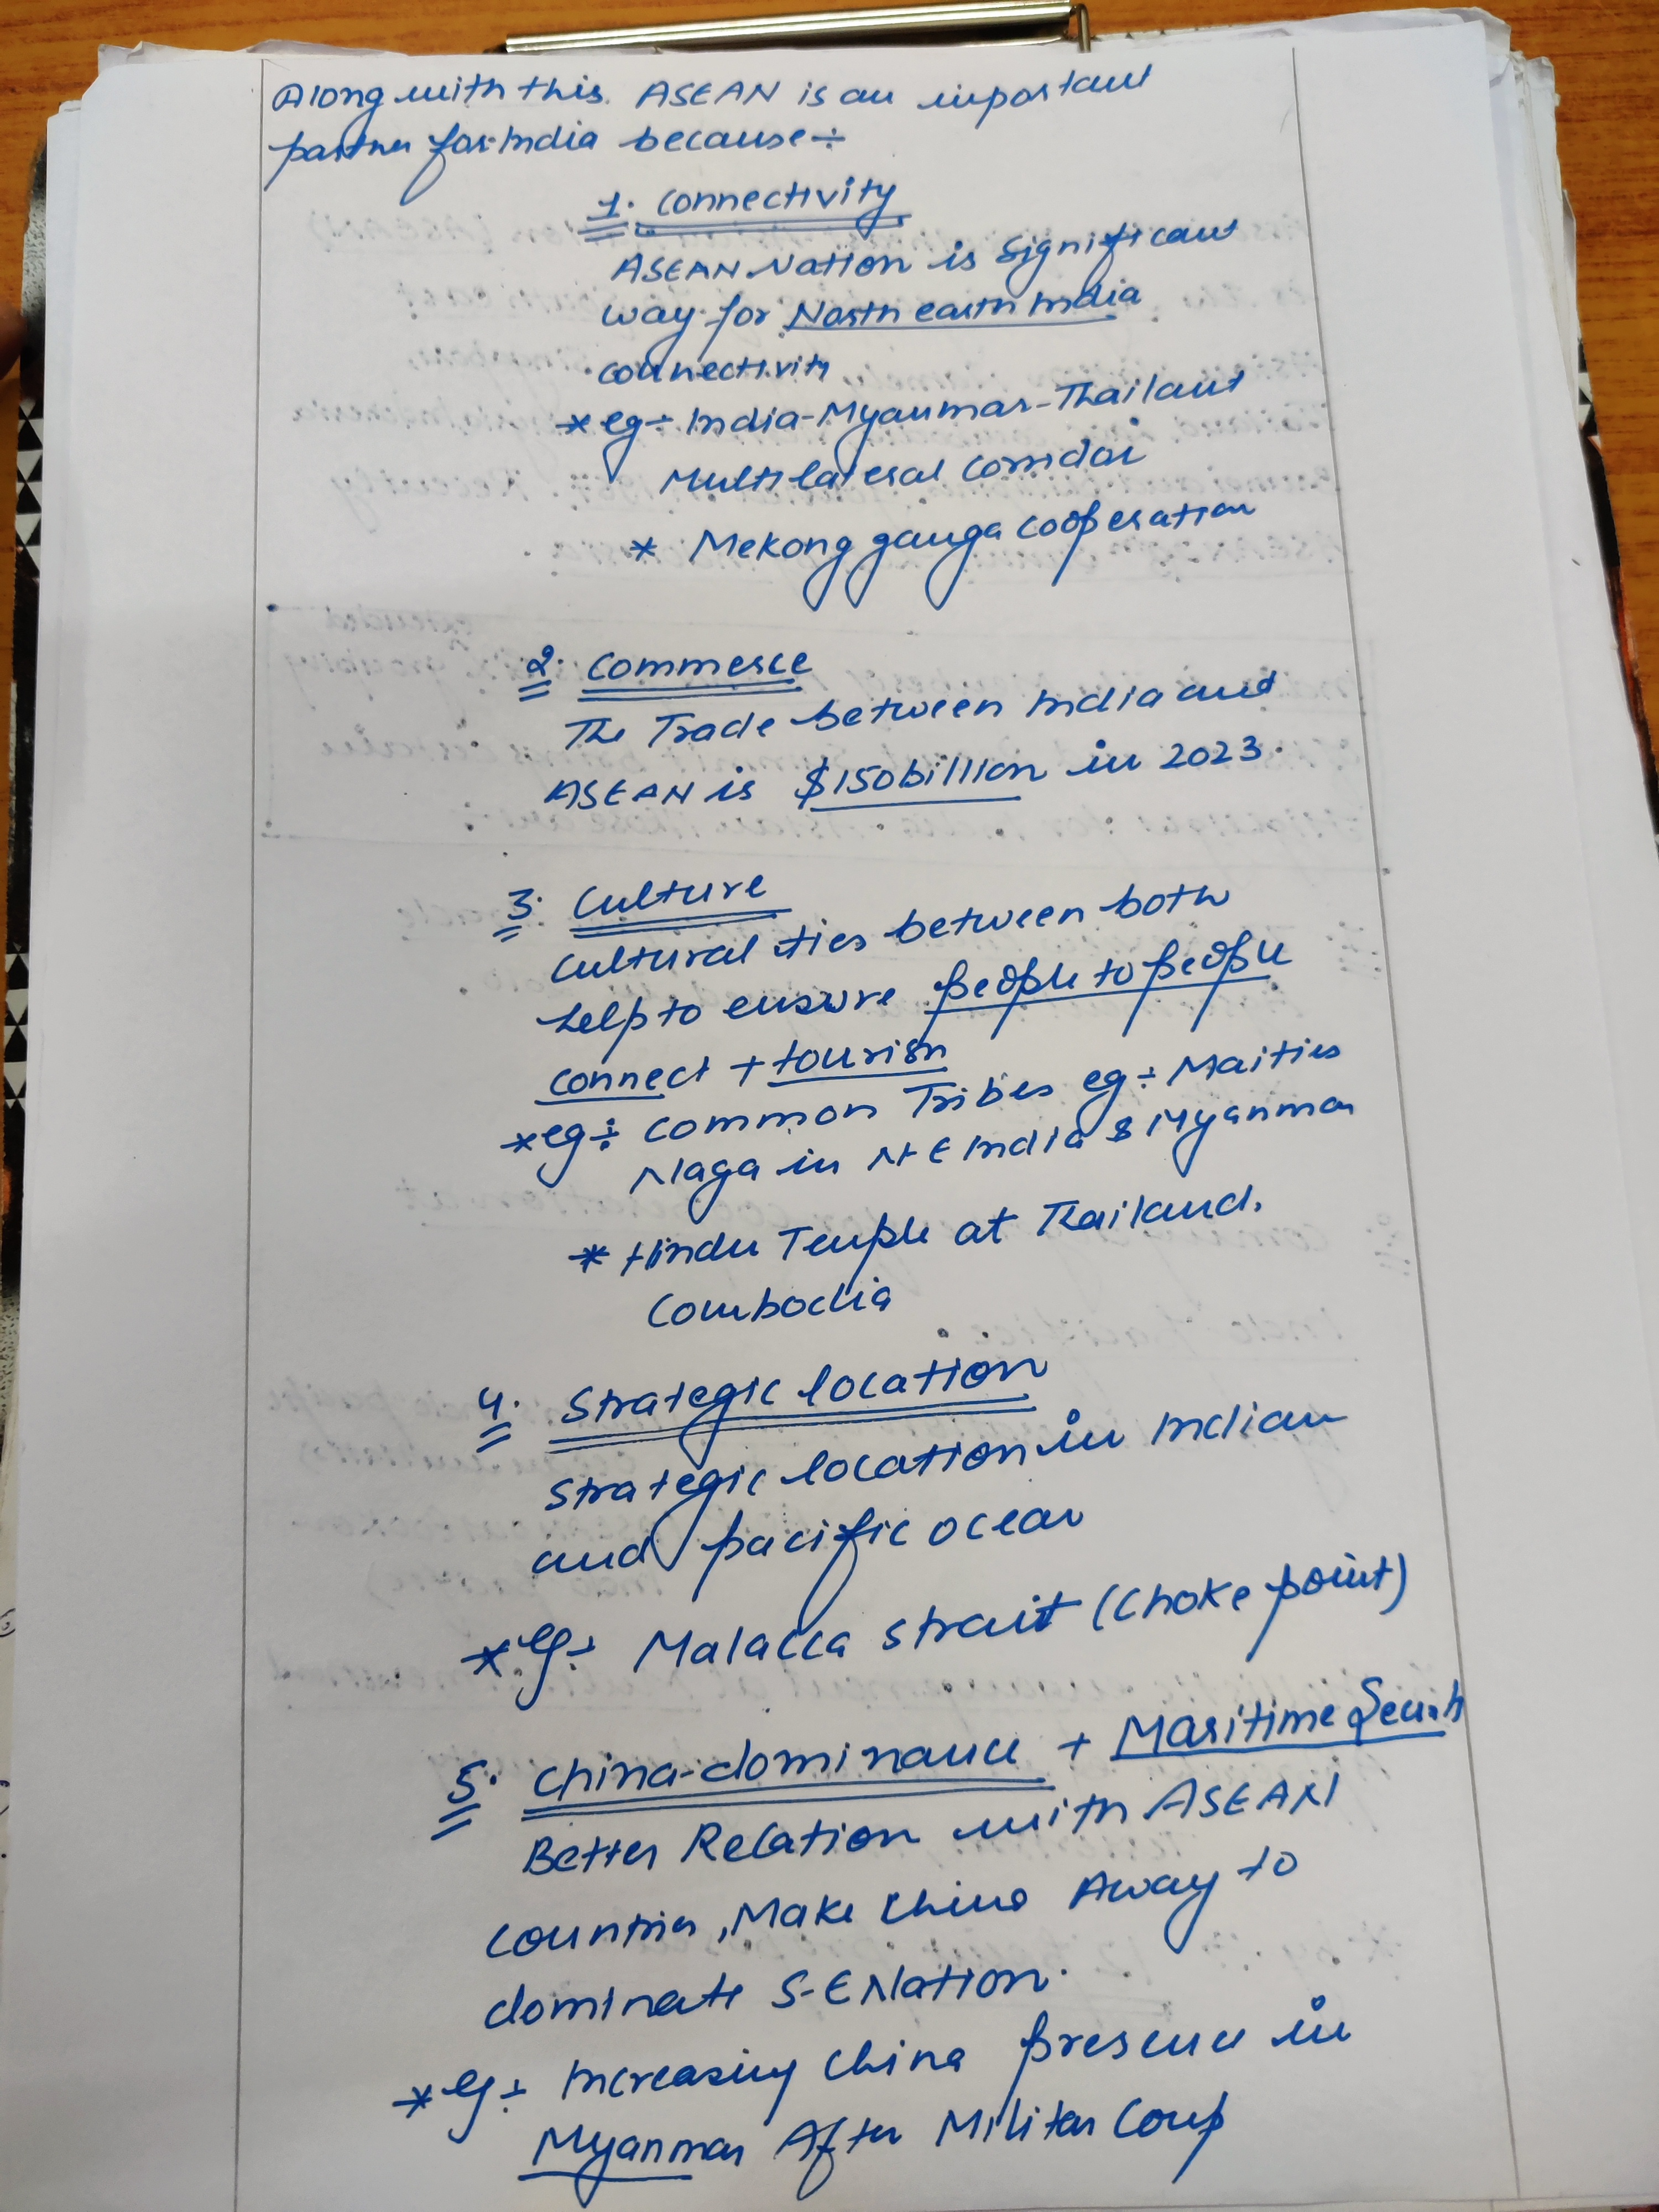 Along with this. ASEAN is an important
partner for India because÷
1. Connectivity
ASEAN Nation is significant
way for North eastn India
connectivity
* eg÷ India-Myanmar-Thailant
Multilateral Corridor
* Mekong ganga cooperation
2. Commerce
The Trade between India and
ASEAN is $150billion in 2023.
3. Culture
Cultural ties between both
help to ensure people to people
connect + tourism
*eg÷ Common Tribes eg÷ Maities
Naga in NE India & Myanmar
* Hindu Temple at Thailand.
Combodia
4. Strategic location
Strategic location in Indian
and pacific ocean
*eg÷ Malacca strait (Choke point)
5. China-dominance + Maritime Security
Better Relation with ASEAN
countries, Make China Away to
dominate S-E Nation.
*eg÷ Increasing China presence in
Myanmar After Militar Coup